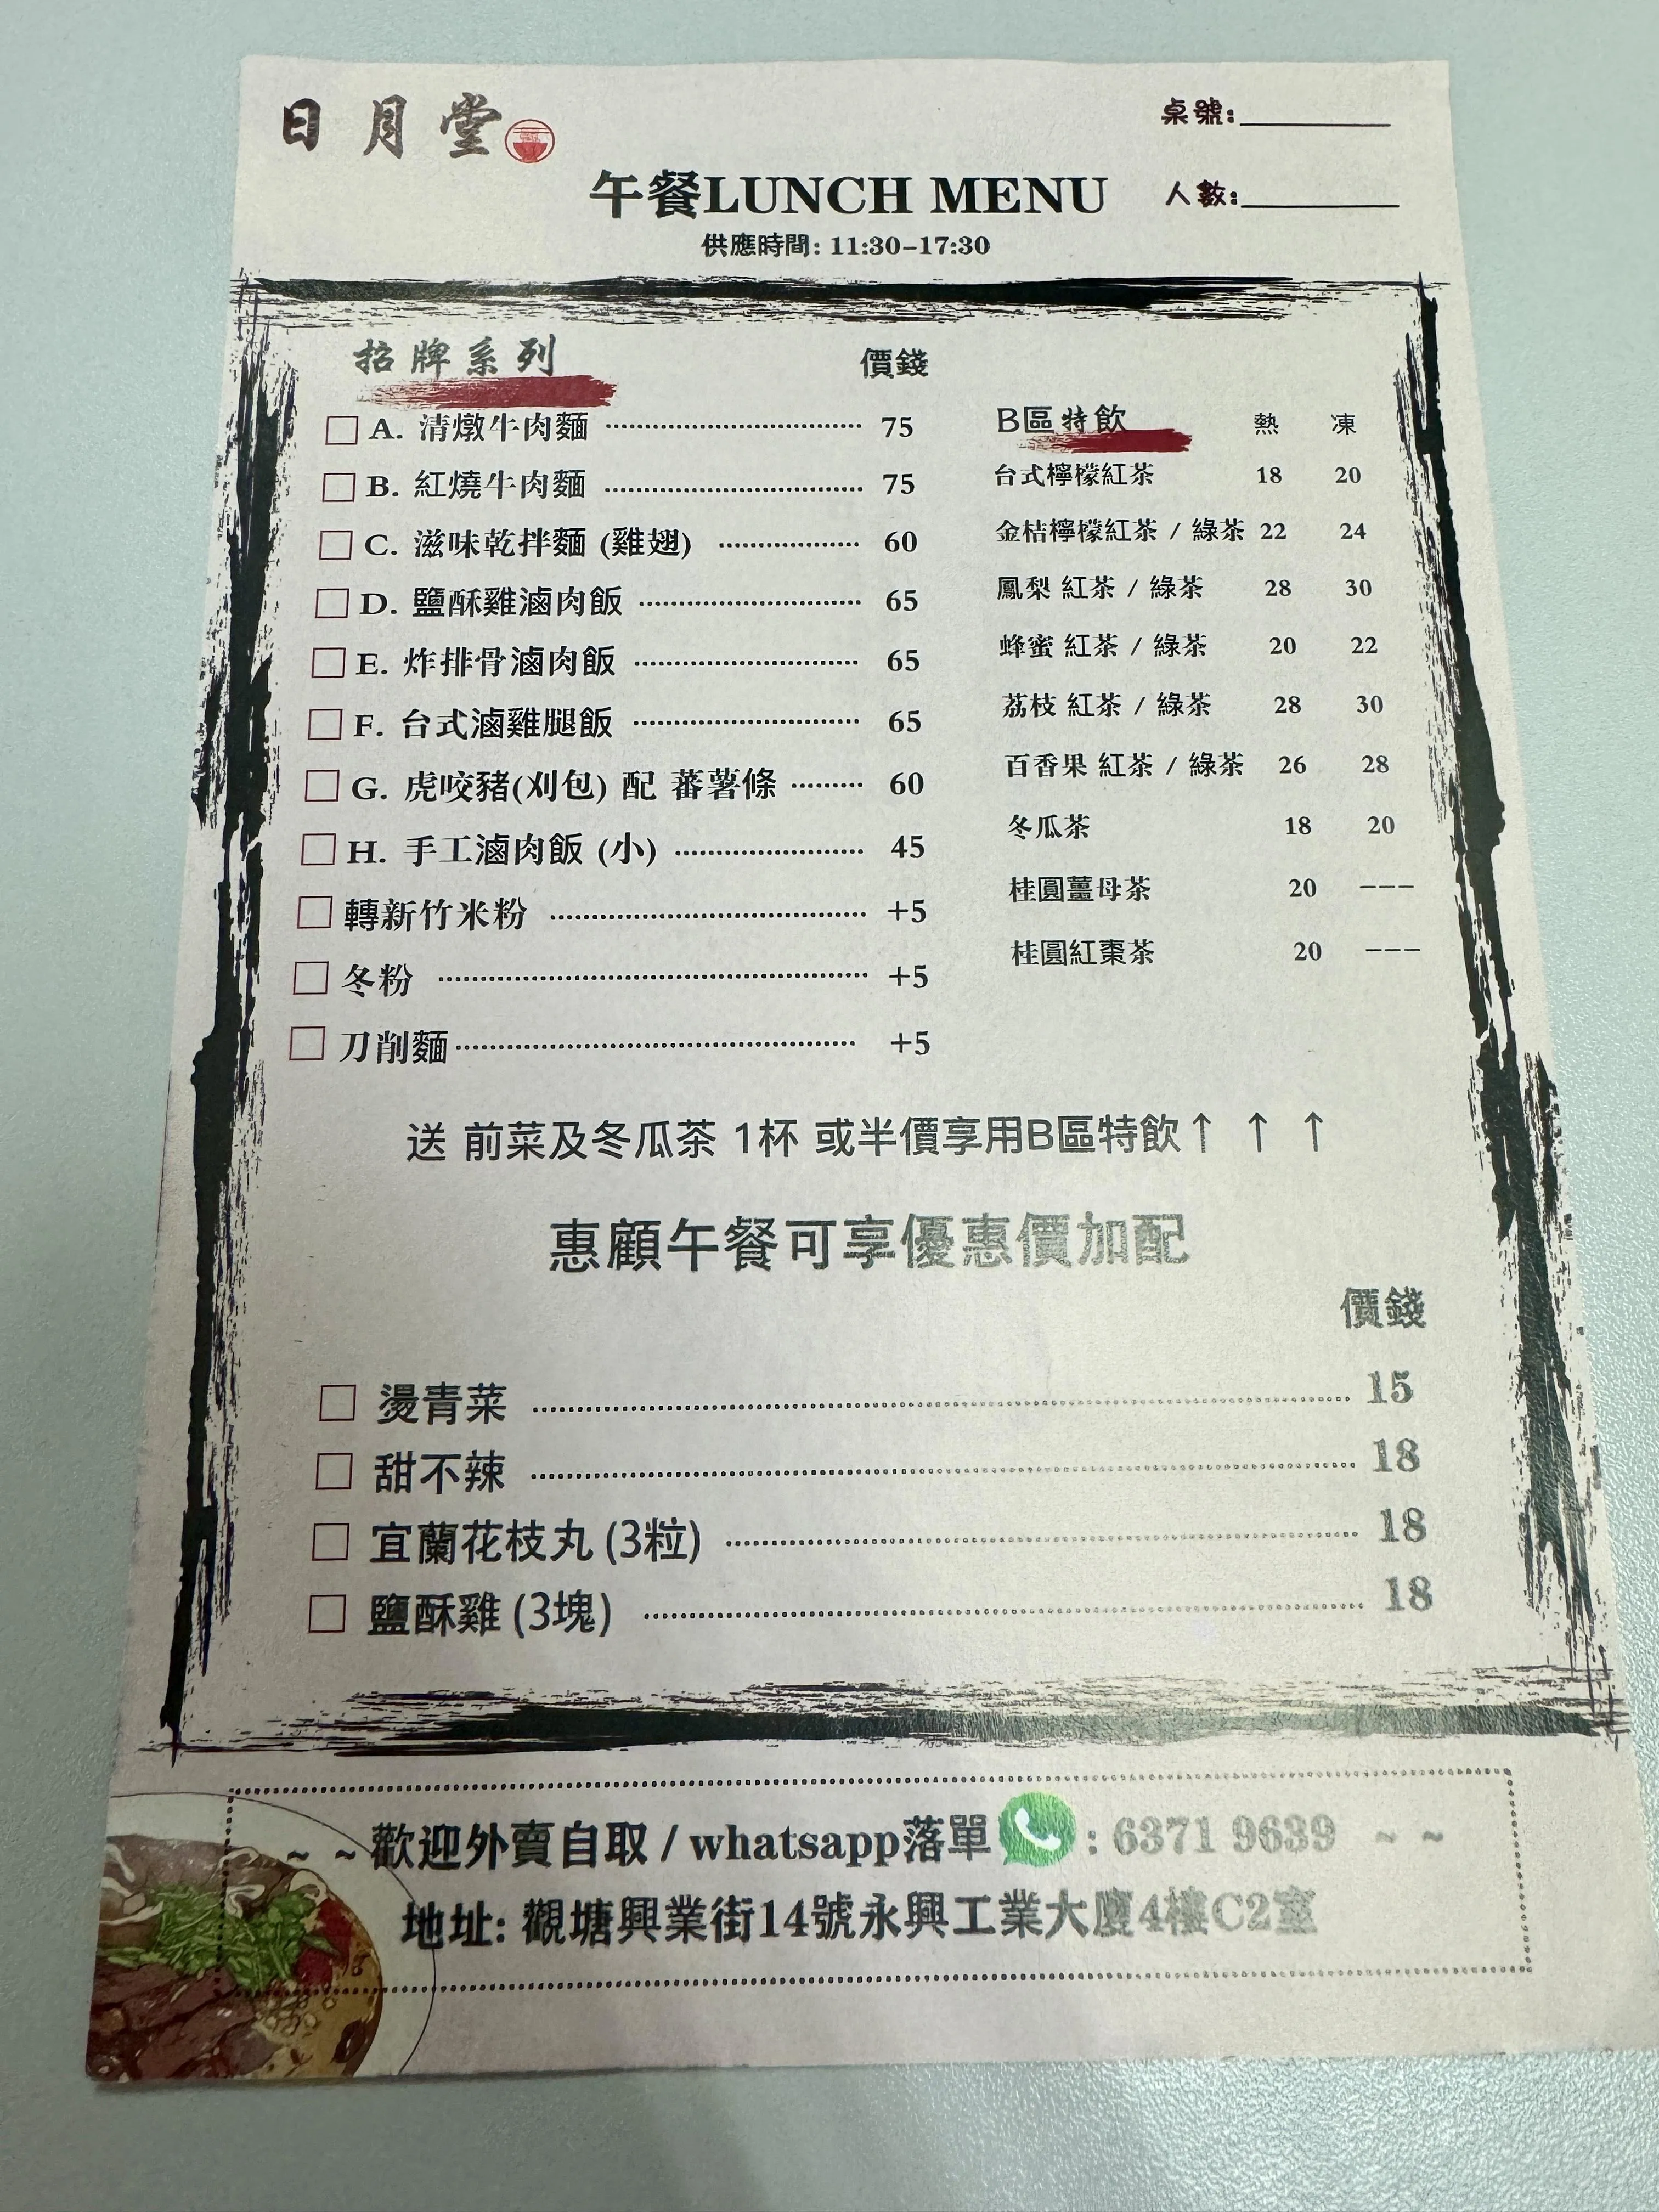 日月堂
桌號:
午餐LUNCH MENU
人數:
供應時間: 11:30–17:30
招牌系列 價錢
A. 清燉牛肉麵 75
B. 紅燒牛肉麵 75
C. 滋味乾拌麵 (雞翅) 60
D. 鹽酥雞滷肉飯 65
E. 炸排骨滷肉飯 65
F. 台式滷雞腿飯 65
G. 虎咬豬(刈包) 配 蕃薯條 60
H. 手工滷肉飯 (小) 45
轉新竹米粉 +5
冬粉 +5
刀削麵 +5
B區特飲 熱 凍
台式檸檬紅茶 18 20
金桔檸檬紅茶 / 綠茶 22 24
鳳梨 紅茶 / 綠茶 28 30
蜂蜜 紅茶 / 綠茶 20 22
荔枝 紅茶 / 綠茶 28 30
百香果 紅茶 / 綠茶 26 28
冬瓜茶 18 20
桂圓薑母茶 20 ---
桂圓紅棗茶 20 ---
送 前菜及冬瓜茶 1杯 或半價享用B區特飲↑ ↑ ↑
惠顧午餐可享優惠價加配
價錢
燙青菜 15
甜不辣 18
宜蘭花枝丸 (3粒) 18
鹽酥雞 (3塊) 18
~ ~歡迎外賣自取 / whatsapp落單 : 6371 9639 ~ ~
地址: 觀塘興業街14號永興工業大廈4樓C2室